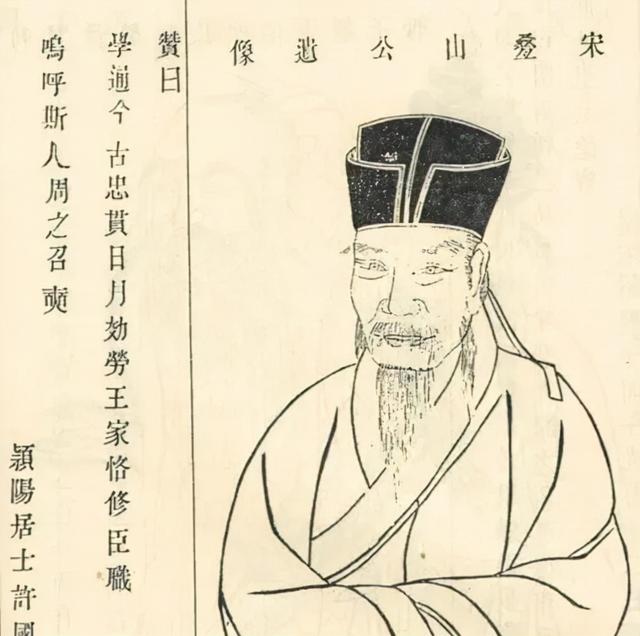 宋疊山公遺像
贊曰
學通今古忠貫日月効勞王家恪修臣職
嗚呼斯人周之召奭
穎陽居士許國